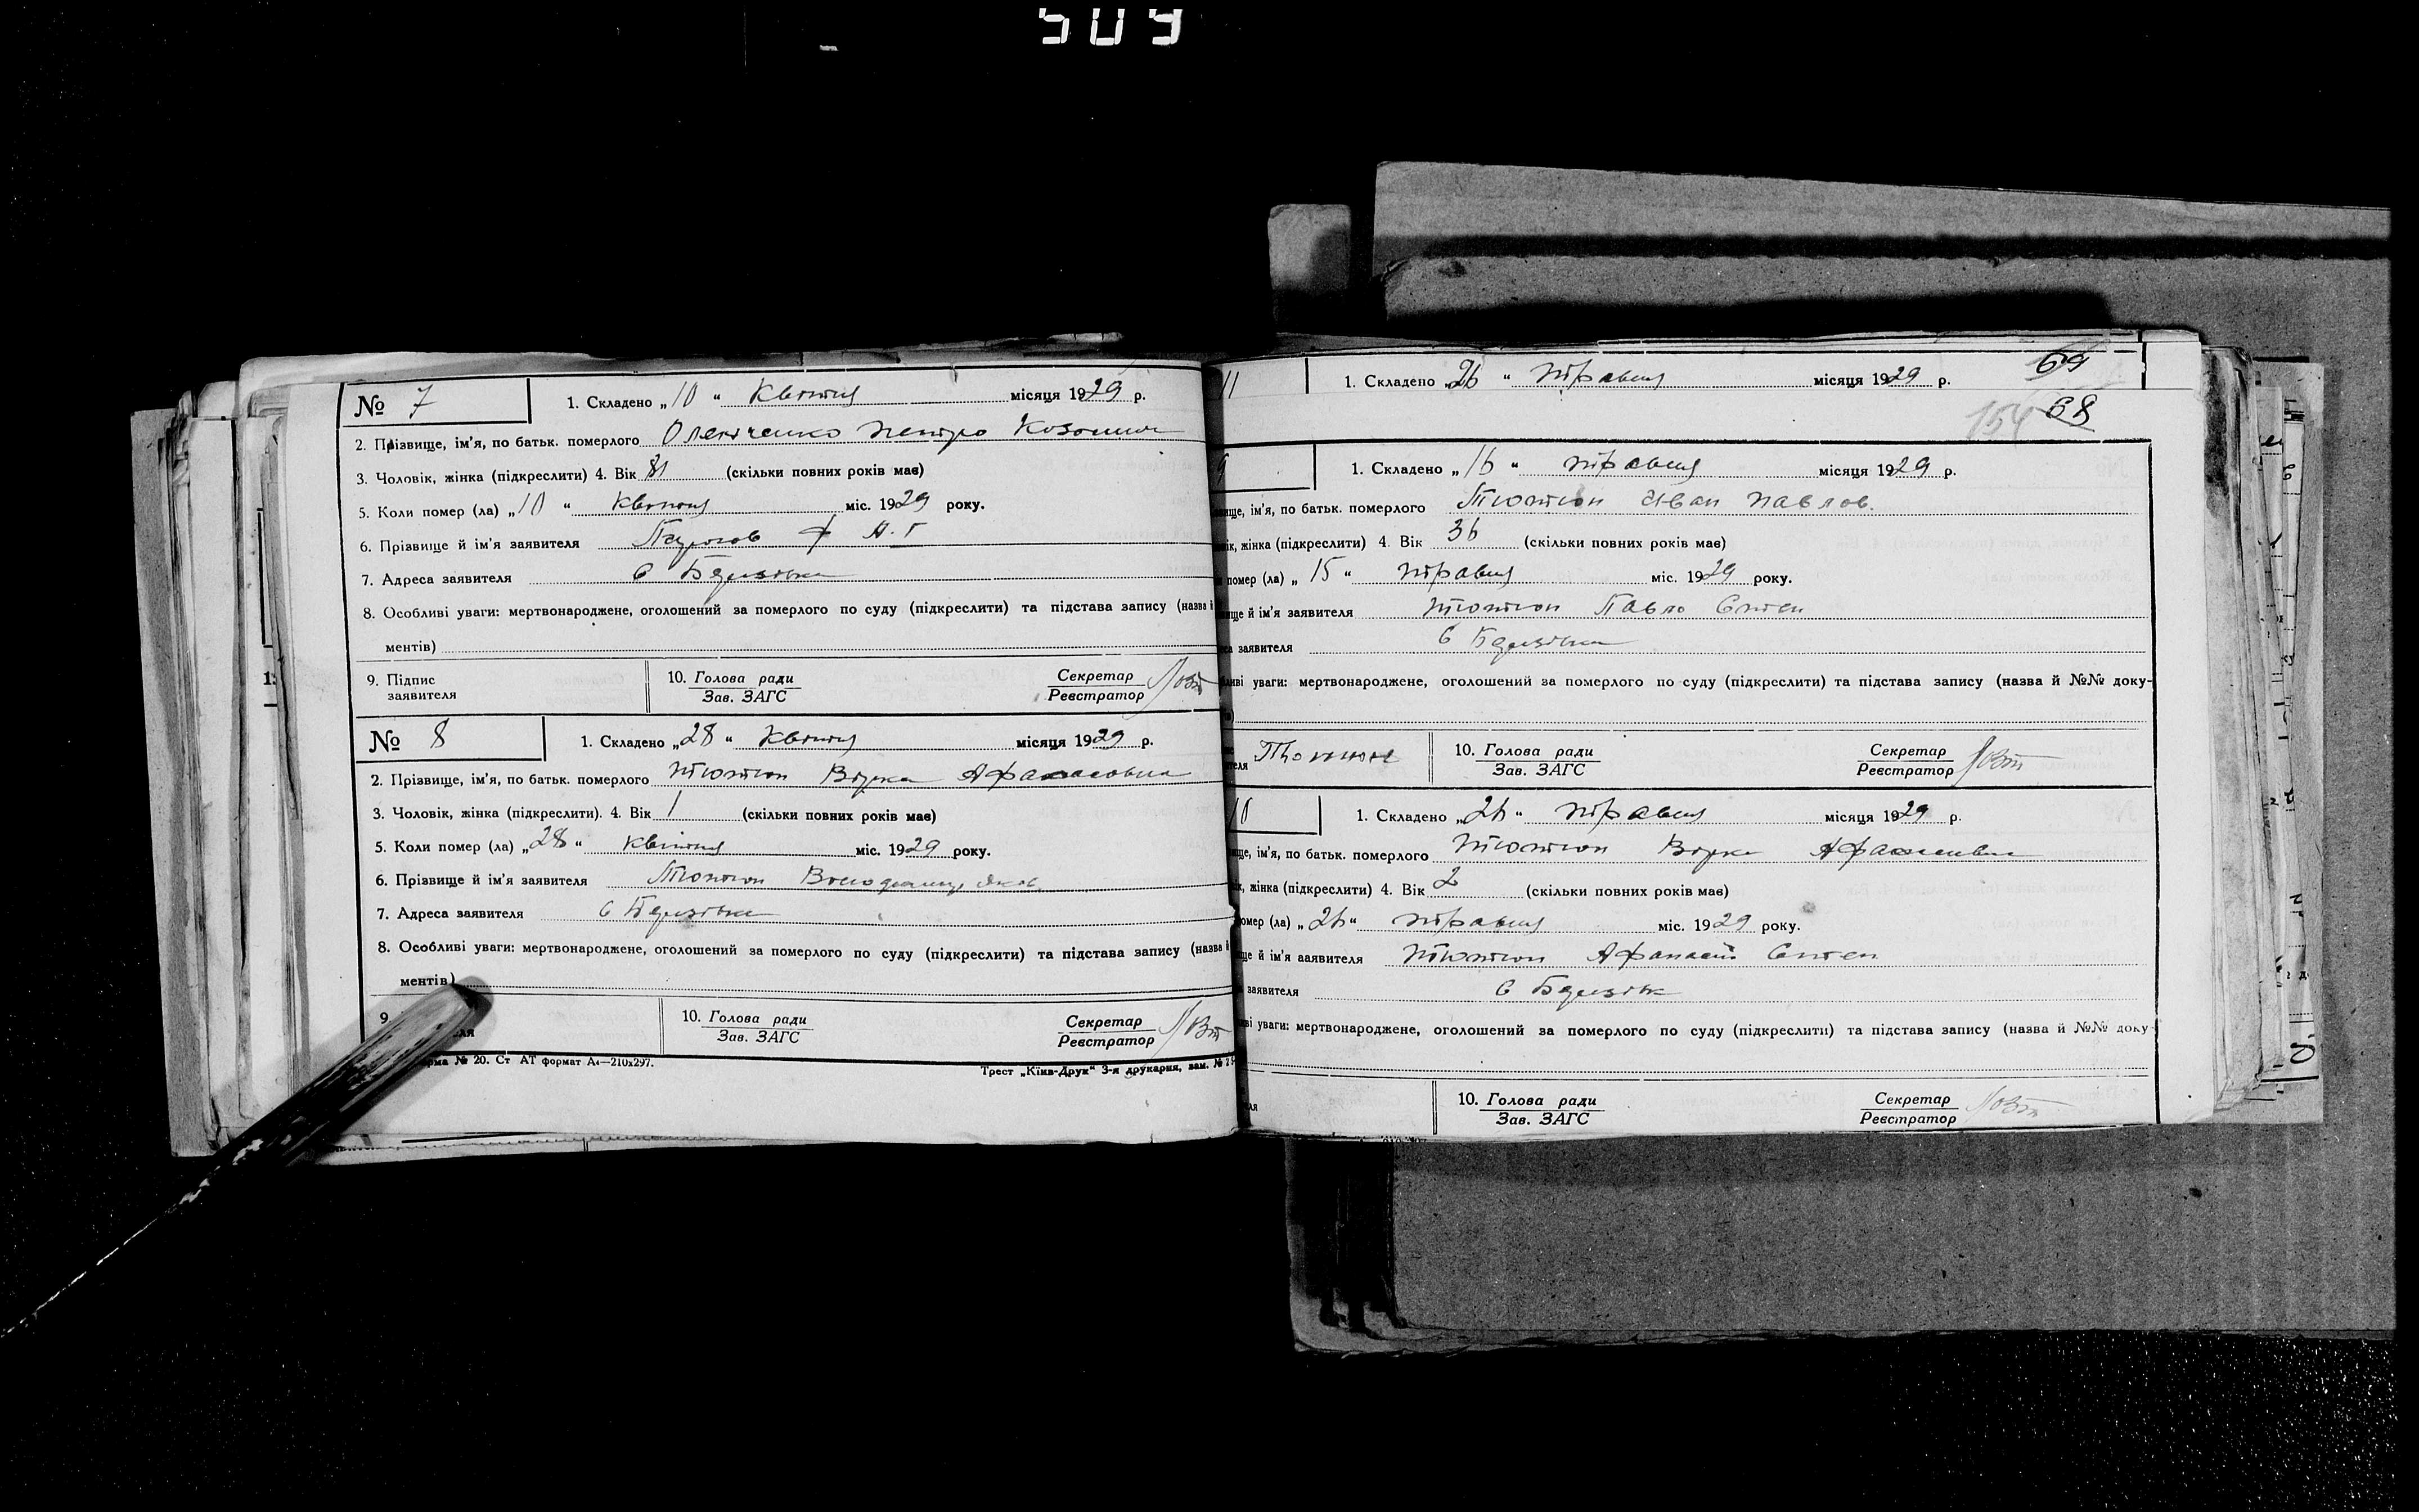 509
№ 7 1. Складено „10“ Квітня місяця 1929 р.
2. Прізвище, ім'я, по батьк. померлого Олексієнко Петро
3. Чоловік, жінка (підкреслити) 4. Вік 81 (скільки повних років має)
5. Коли помер (ла) „10“ Квітня міс. 1929 року.
6. Прізвище й ім'я заявителя
7. Адреса заявителя с
8. Особливі уваги: мертвонароджене, оголошений за померлого по суду (підкреслити) та підстава запису (назва й
ментів)
9. Підпис заявителя 10. Голова ради Зав. ЗАГС Секретар Реєстратор
№ 8 1. Складено „28“ Квітня місяця 1929 р.
2. Прізвище, ім'я, по батьк. померлого Тютюн Вірка Афанасовна
3. Чоловік, жінка (підкреслити). 4. Вік 1 (скільки повних років має)
5. Коли помер (ла) „28“ Квітня міс. 1929 року.
6. Прізвище й ім'я заявителя Тютюн Яков
7. Адреса заявителя с
8. Особливі уваги: мертвонароджене, оголошений за померлого по суду (підкреслити) та підстава запису (назва й
ментів)
9. 10. Голова ради Зав. ЗАГС Секретар Реєстратор
№ 20. Ст АТ формат А4—210x297. Трест „Київ-Друк“ 3-я друкарня, зам. №
11 1. Складено „26“ травня місяця 1929 р. 69
154 68
9 1. Складено „16“ травня місяця 1929 р.
ім'я, по батьк. померлого Тютюн Иван Павлов.
жінка (підкреслити) 4. Вік 36 (скільки повних років має)
помер (ла) „15“ травня міс. 1929 року.
й ім'я заявителя Тютюн Павло Степ
заявителя с
уваги: мертвонароджене, оголошений за померлого по суду (підкреслити) та підстава запису (назва й №№ доку-
Тютюн 10. Голова ради Зав. ЗАГС Секретар Реєстратор
10 1. Складено „26“ травня місяця 1929 р.
ім'я, по батьк. померлого Тютюн Вірка Афанасовна
жінка (підкреслити) 4. Вік 2 (скільки повних років має)
помер (ла) „26“ травня міс. 1929 року.
й ім'я заявителя Тютюн Афанасій Степ
заявителя с
уваги: мертвонароджене, оголошений за померлого по суду (підкреслити) та підстава запису (назва й №№ доку-
10. Голова ради Зав. ЗАГС Секретар Реєстратор